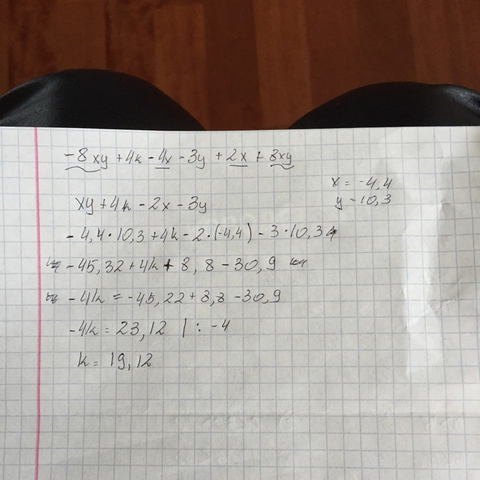 -8xy + 4k - 4x - 3y + 2x + 8xy
x = -4,4
y - 10,3
xy + 4k - 2x - 3y
- 4,4 · 10,3 + 4k - 2 · (-4,4) - 3 · 10,3
- 45,32 + 4k + 8,8 - 30,9
- 4k = -45,22 + 8,8 - 30,9
-4k = 23,12 | : -4
k = 19,12